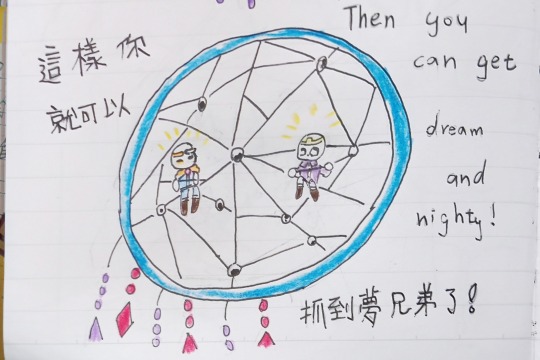 這樣你
就可以
Then you
can get
dream
and
nighty!
抓到夢兄弟了!